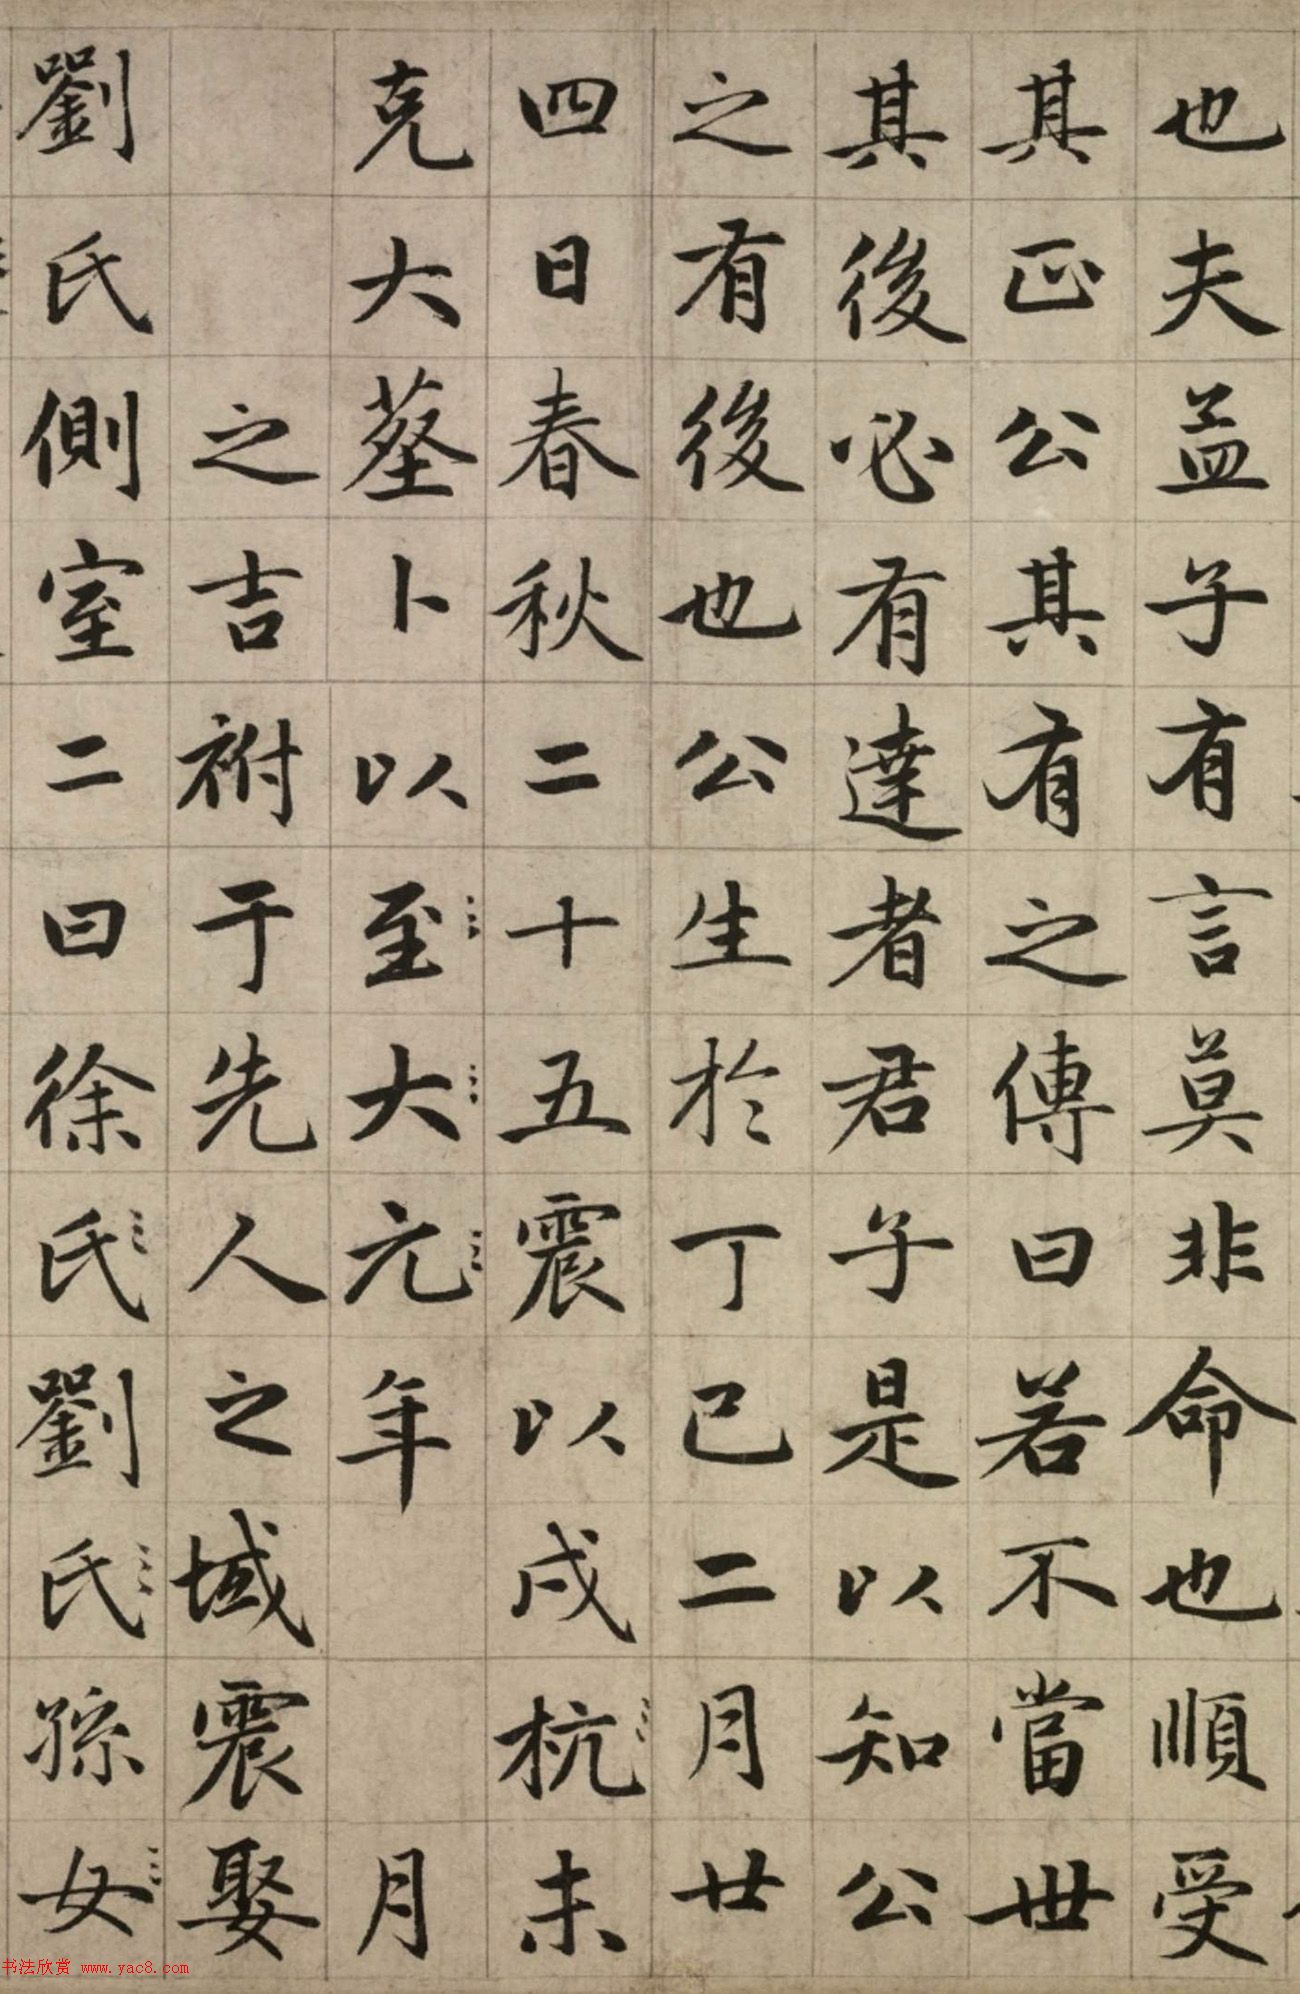 也夫益子有言莫非命也順受
其正公其有之傳曰若不當世
其後必有達者君子是以知公
之有後也公生於丁巳二月廿
四日春秋二十五震以戍杭未
克大葬卜以至大元年月
之吉祔于先人之域震娶
劉氏側室二曰徐氏劉氏孫女
书法欣赏 www.yac8.com